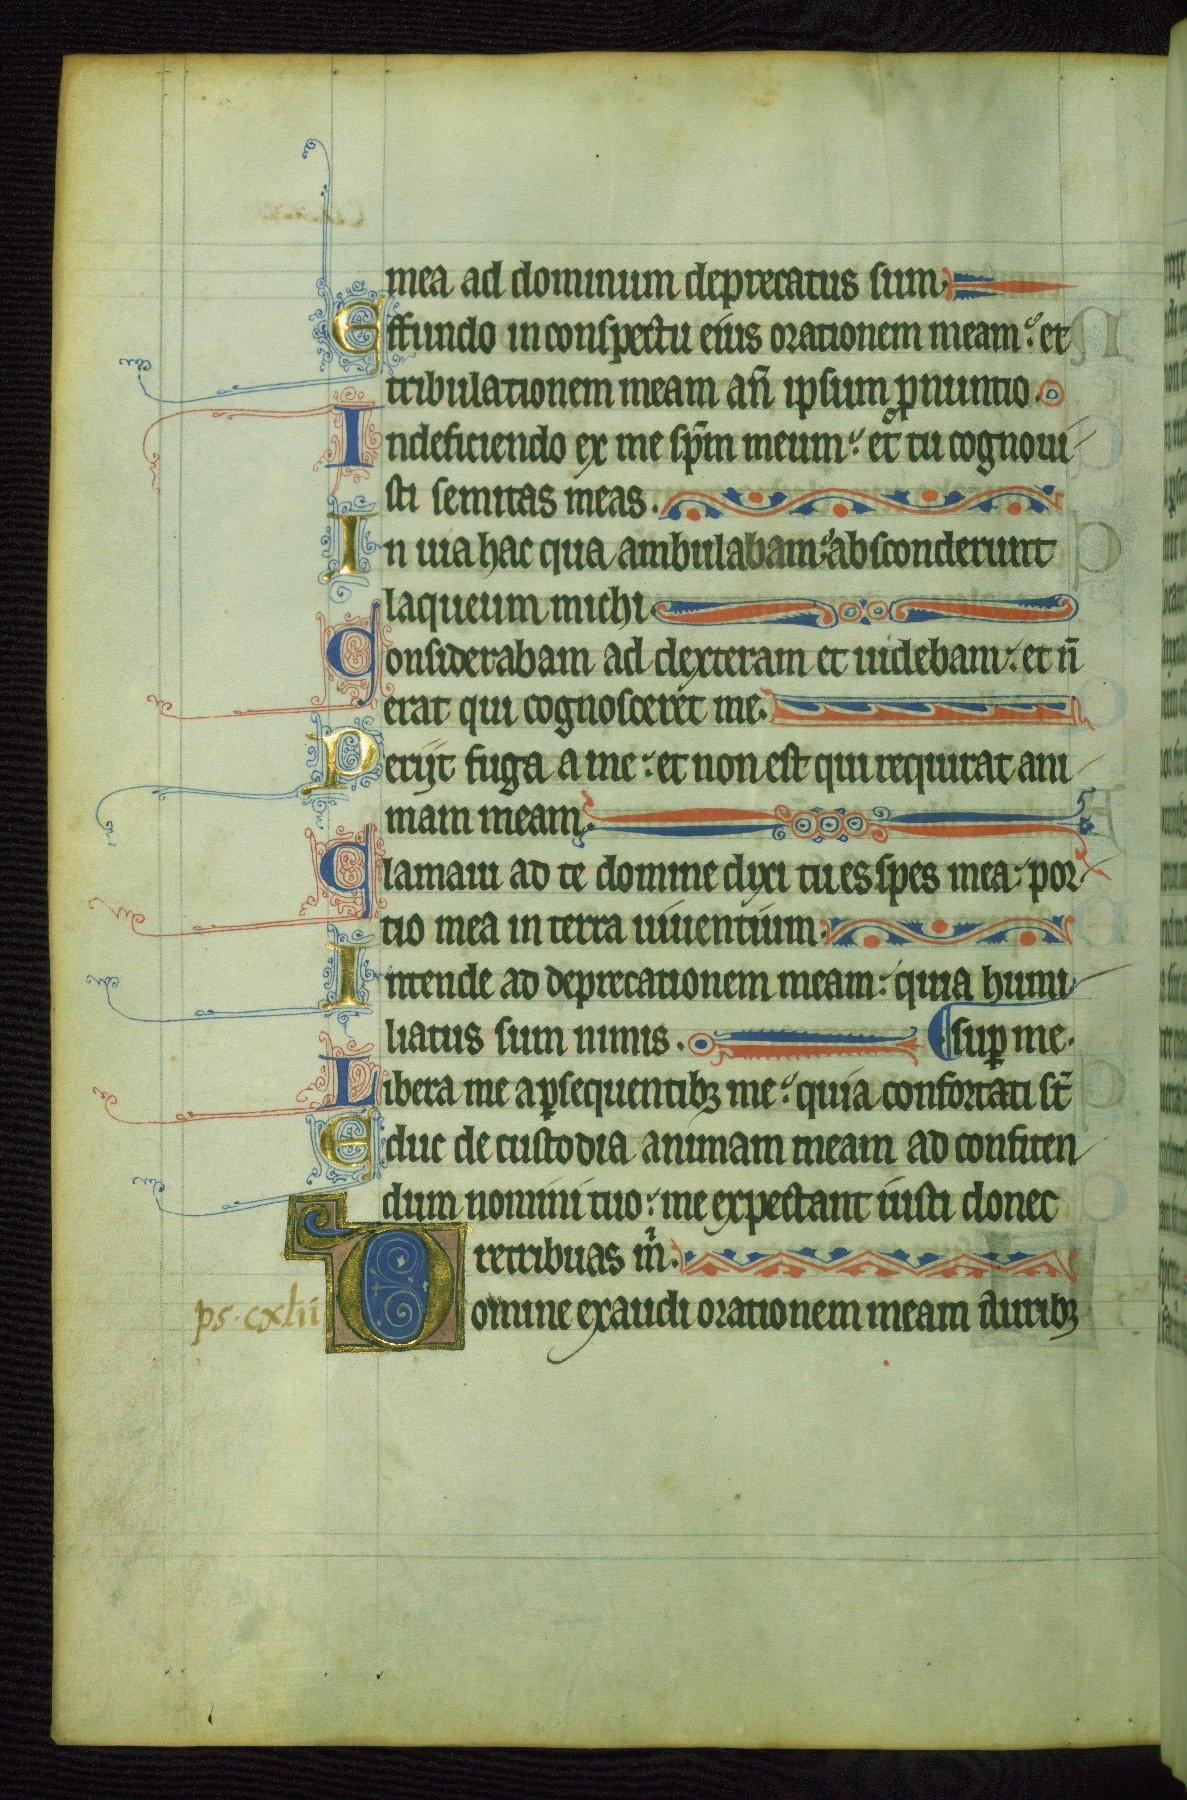 mea ad dominum deprecatus sum
Effundo in conspectu eius orationem meam: et
tribulationem meam añ ipsum pnuntio.
In deficiendo ex me sp̃m meum: et tu cognoui
sti semitas meas.
In uia hac qua ambulabam: absconderunt
laqueum michi.
Considerabam ad dexteram et uidebam: et ñ
erat qui cognosceret me.
Perijt fuga a me: et non est qui requirat ani
mam meam.
Clamaui ad te domine dixi tu es spes mea: por
tio mea in terra uiuentium.
Intende ad deprecationem meam: quia humi
liatus sum nimis.
sup me.
Libera me a psequentibꝫ me: quia confortati st̃
Educ de custodia animam meam ad confiten
dum nomini tuo: me expectant iusti donec
retribuas m̃.
ps. cxlii
Domine exaudi orationem meam auribꝫ